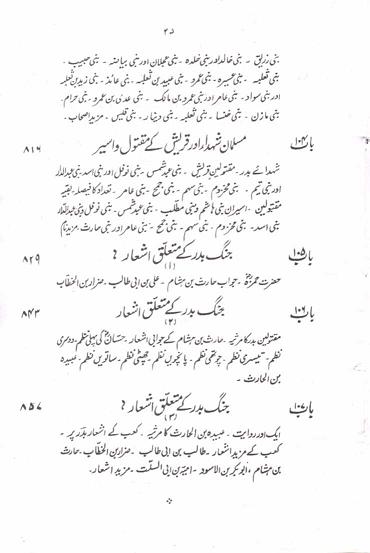 ۴۵
بنی زریق ۔ بنی خالد اور بنی خلدہ ۔ بنی عجلان اور بنی بیاضہ ۔ بنی حبیب ۔
بنی ثعلبہ ۔ بنی عسیرہ ۔ بنی عمرو ۔ بنی عبید بن ثعلبہ ۔ بنی عائذ ۔ بنی زید بن ثعلبہ
اور بنی سواد ۔ بنی عامر اور بنی عمرو بن مالک ۔ بنی عدی بن عمرو ۔ بنی حرام
بنی مازن ۔ بنی خنسا ۔ بنی ثعلبہ ۔ بنی دینار ۔ بنی قلیس ۔ مزید اصحاب ۔
باب ۱۰۴ مسلمان شہدا، اور قریش کے مقتول و اسیر ۸۱۶
شہدائے بدر ۔ مقتولین قریش ۔ بنی عبد شمس ۔ بنی نوفل اور بنی اسد بنی عبد الدار
اور بنی تیم ۔ بنی مخزوم ۔ بنی سہم ۔ بنی جمح ۔ بنی عامر ۔ تعداد کا فیصلہ ۔ بقیہ
مقتولین ۔ اسیران بنی ہاشم و بنی مطلب ۔ بنی عبد شمس ۔ بنی نوفل و بنی عبد الدار
بنی اسد ۔ بنی مخزوم ۔ بنی سہم ۔ بنی جمح ۔ بنی عامر اور بنی حارث ۔ مزید نام
باب ۱۰۵ جنگ بدر کے متعلق اشعار ۸۲۹
(۱)
حضرت حمزہؓ ۔ جواب حارث بن ہشام ۔ علی بن ابی طالب ۔ ضرار بن الخطاب
باب ۱۰۶ جنگ بدر کے متعلق اشعار ۸۴۳
(۲)
مقتولین بدر کا مرثیہ ۔ حارث بن ہشام کے جوابی اشعار ۔ حسانؓ کی پہلی نظم ۔ دوسری
نظم ۔ تیسری نظم ۔ چوتھی نظم ۔ پانچویں نظم ۔ چھٹی نظم ۔ ساتویں نظم ۔ عبیدہ
بن الحارث ۔
باب ۱۰۷ جنگ بدر کے متعلق اشعار ۸۵۷
(۳)
ایک اور روایت ۔ عبیدہ بن الحارث کا مرثیہ ۔ کعب کے اشعار بدر پر ۔
کعب کے مزید اشعار ۔ طالب بن ابی طالب ۔ ضرار بن الخطاب ۔ حارث
بن ہشام ، ابوبکر بن الاسود ۔ امیہ بن ابی الصلت ۔ مزید اشعار ۔